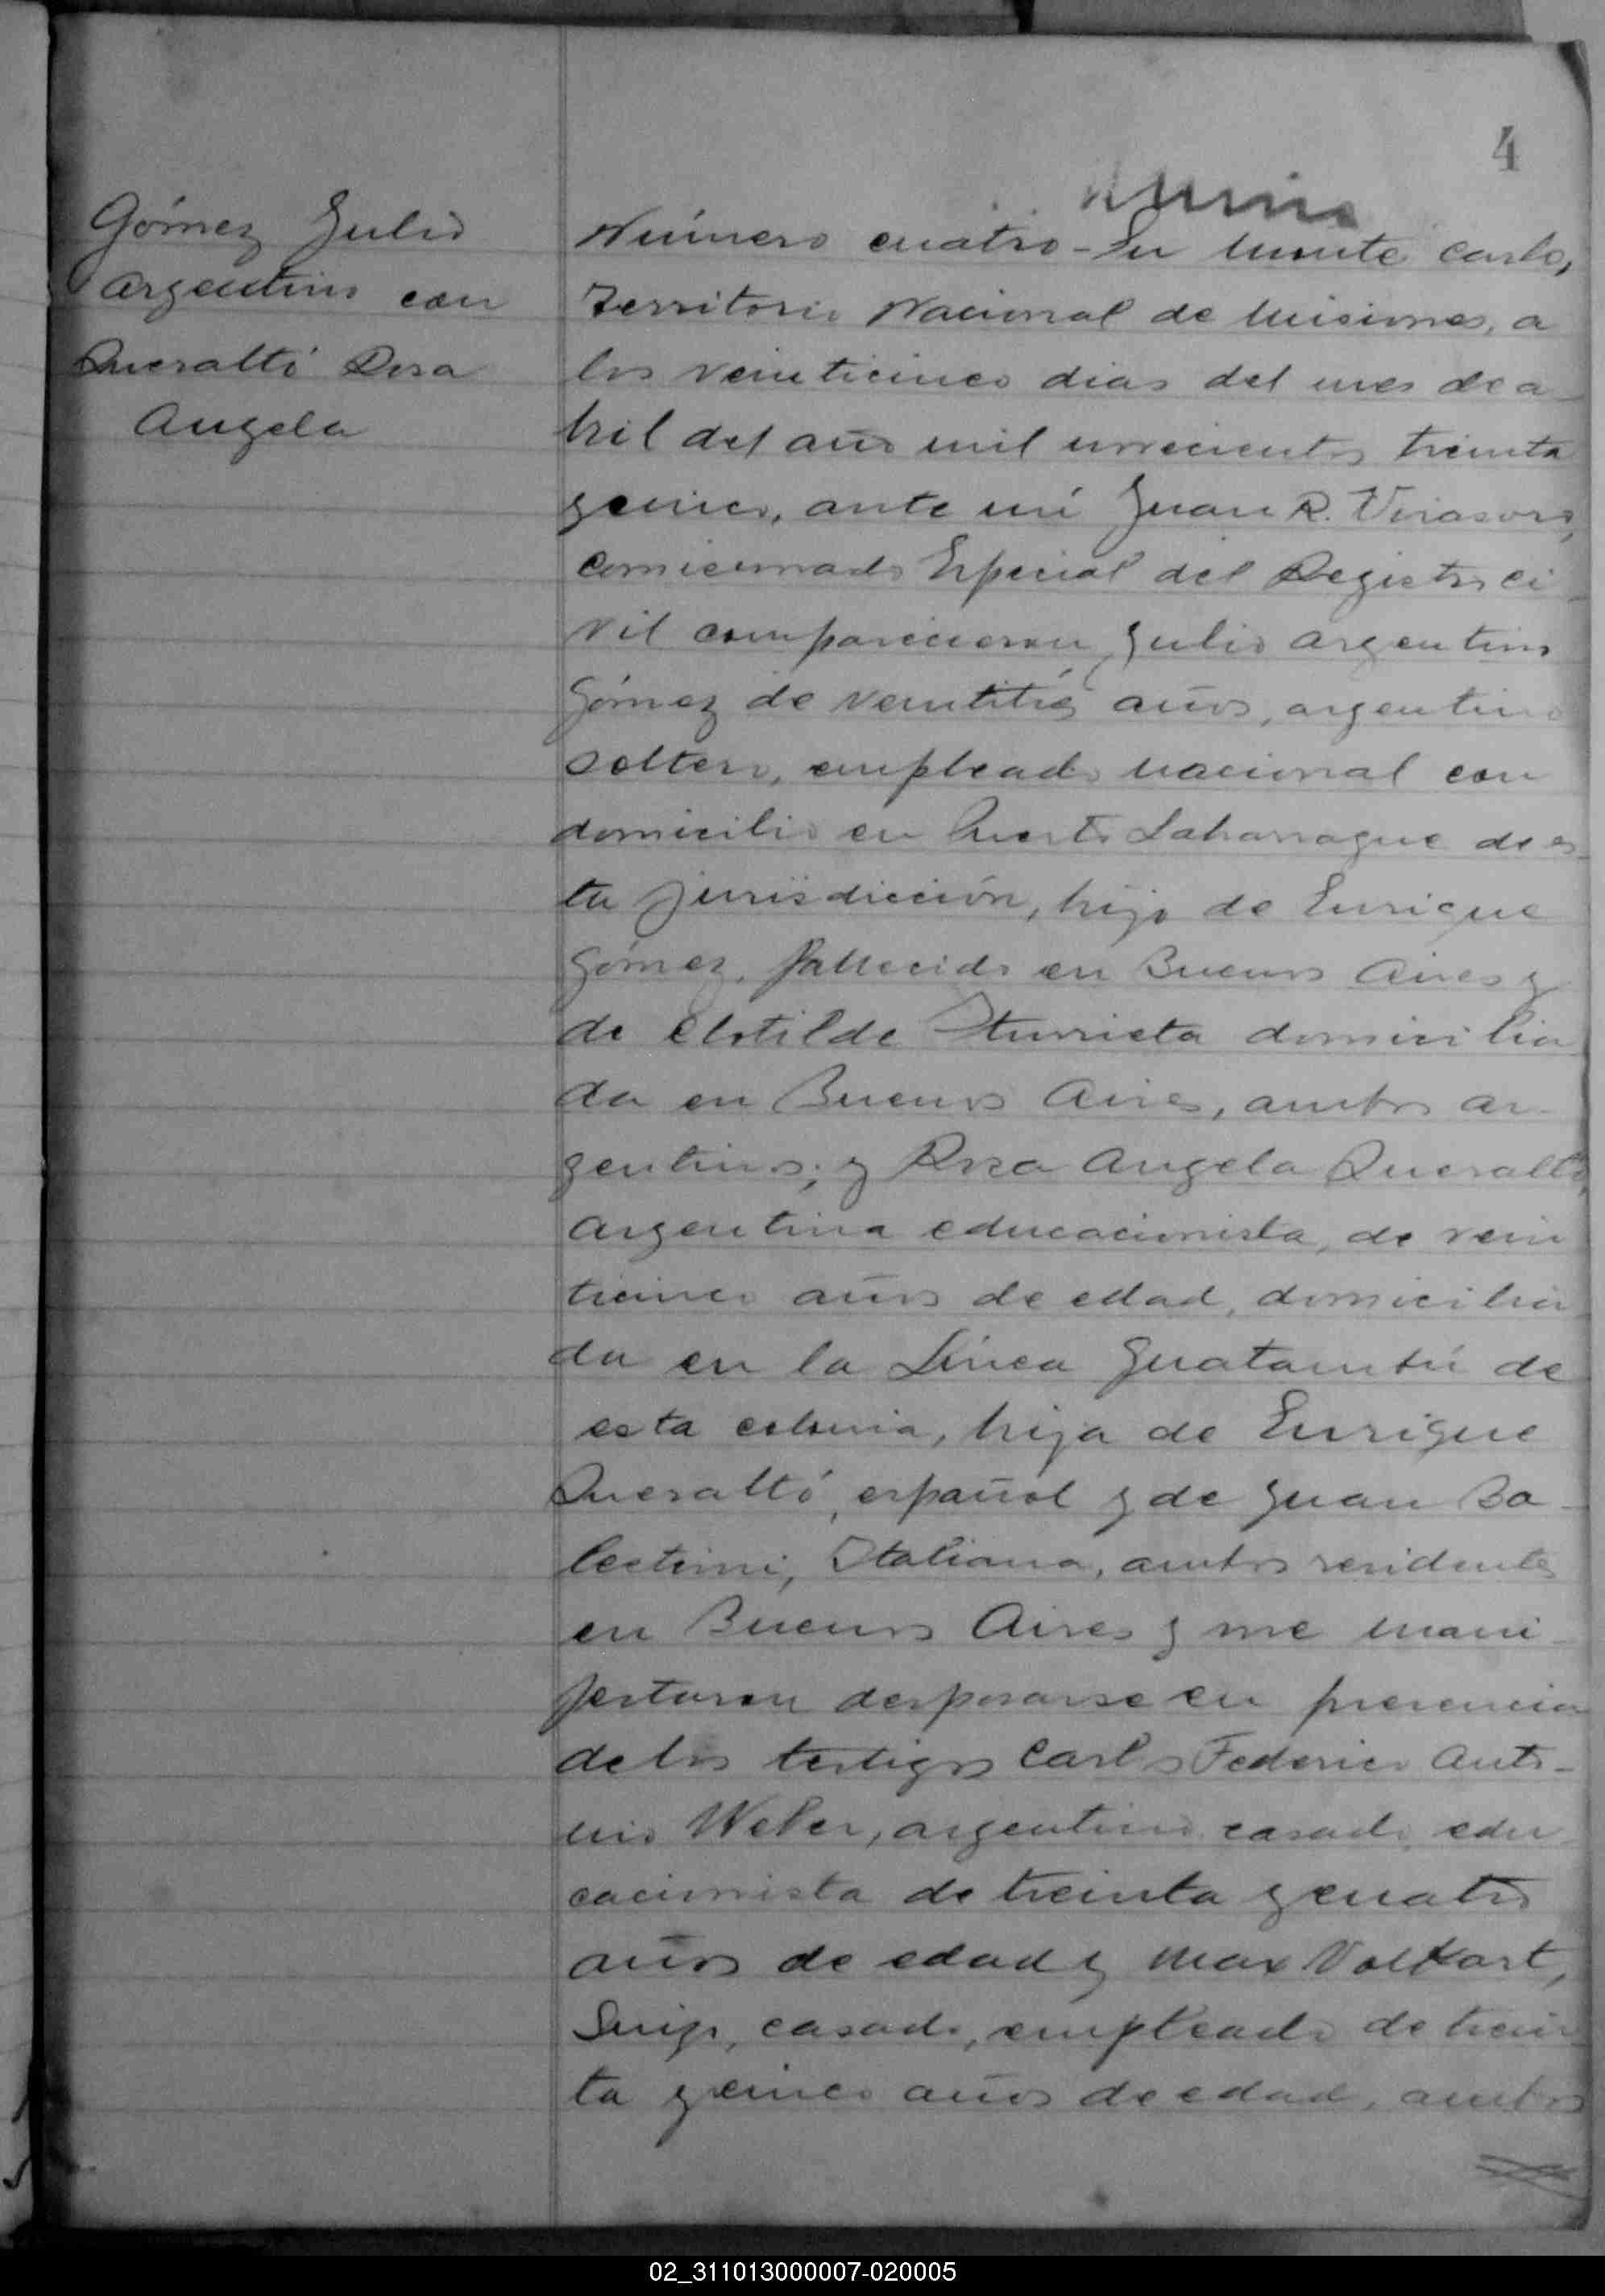 4
Gómez Julio
Argentino con
Queraltó Rosa
Angela
Número cuatro - En Monte Carlo,
Territorio Nacional de Misiones, a
los veinticinco dias del mes de a-
bril del año mil novecientos treinta
y cinco, ante mí Juan R. Virasoro,
comicionado Especial del Registro Ci-
vil comparecieron, Julio Argentino
Gómez de veintitrés años, argentino
soltero, empleado nacional con
domicilio en Puerto Laharrague de es-
ta jurisdicción, hijo de Enrique
Gómez, fallecido en Buenos Aires y
de Clotilde Iturrieta domicilia
da en Buenos Aires, ambos ar-
gentinos; y Rosa Angela Queraltó,
argentina educacionista, de vein
ticinco años de edad, domicilia
da en la Línea Guatambú de
esta colonia, hija de Enrique
Queraltó, español y de Juan Ba-
lectini, Italiana, ambos residentes
en Buenos Aires y me mani-
festaron desposarse en presencia
de los testigos Carlos Federico Anto-
nio Weber, argentino casado edu
cacionista de treinta y cuatro
años de edad y Max Volkart,
Suizo, casado, empleado de trein
ta y cinco años de edad, ambos
02_311013000007-020005